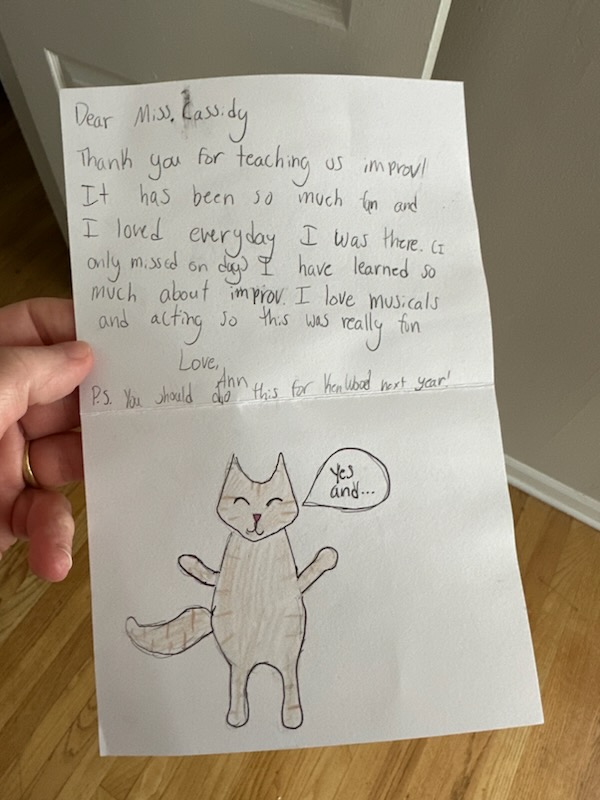 Dear Miss. Cassidy
Thank you for teaching us improv!
It has been so much fun and
I loved everyday I was there. (I
only missed on day) I have learned so
much about improv. I love musicals
and acting so this was really fun
Love,
Ann
P.S. You should do this for Kenwood next year!
Yes
and...